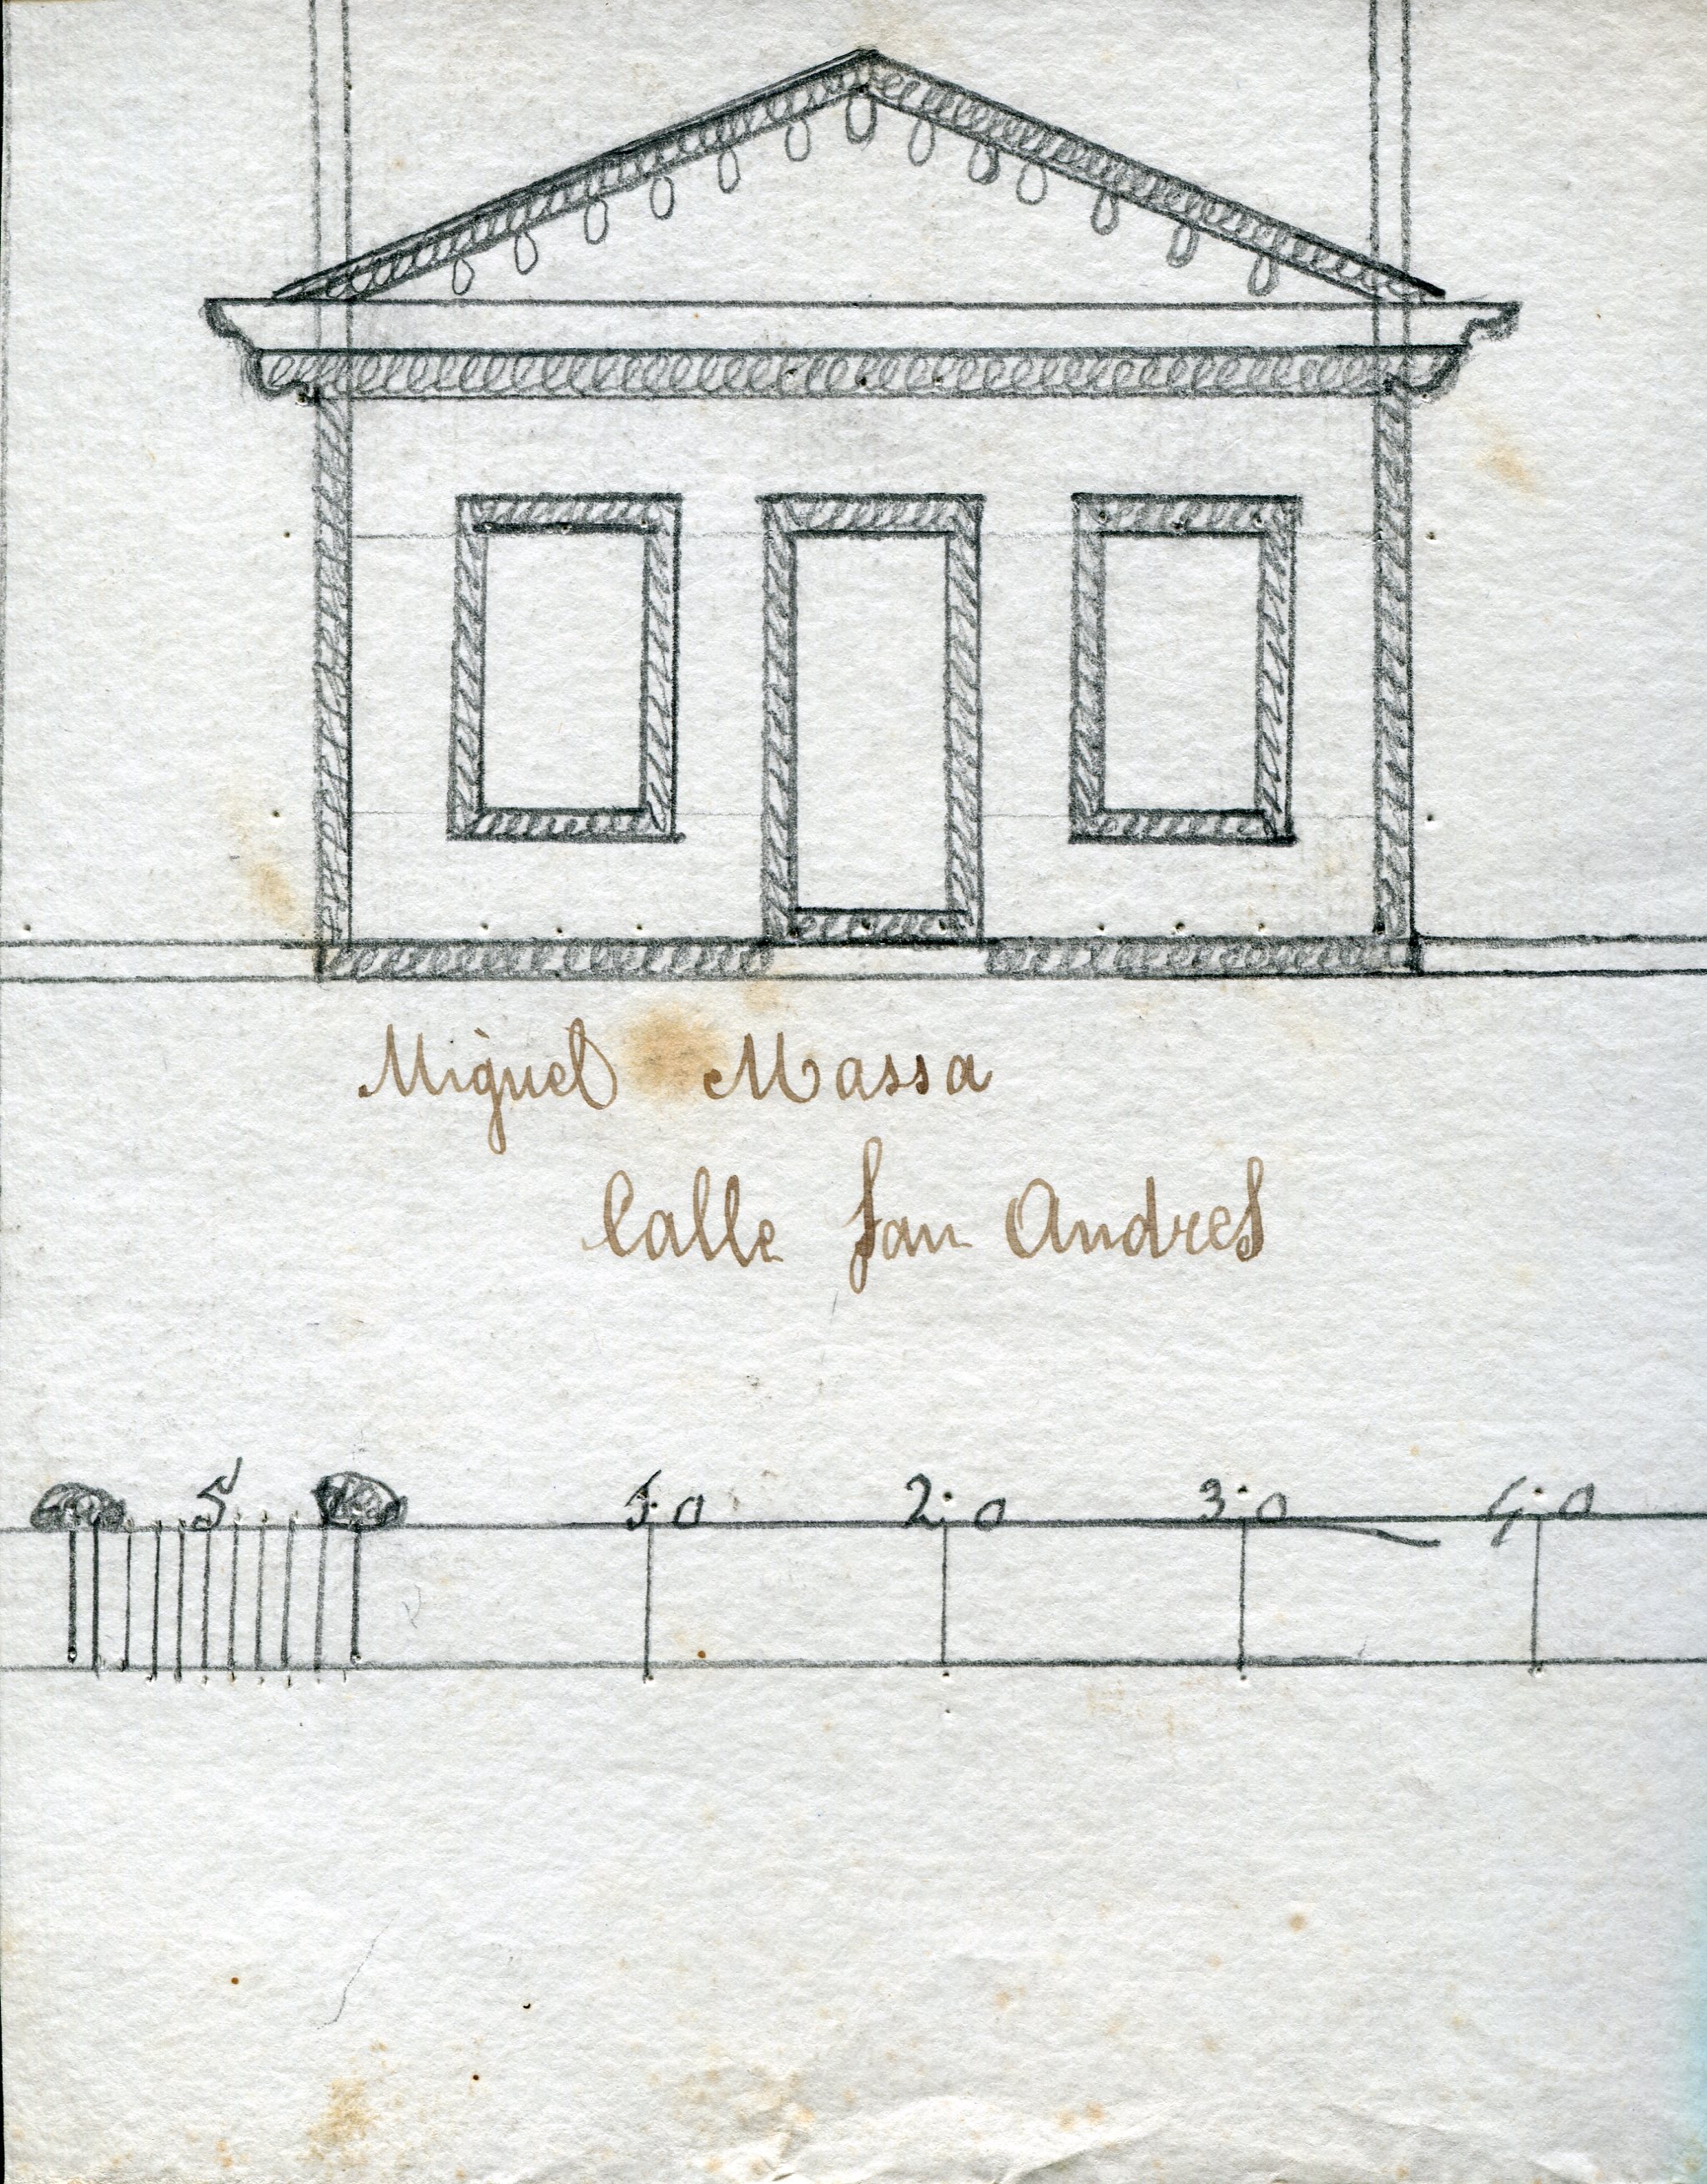 Miguel Massa
Calle San Andres
5 10 20 30 40